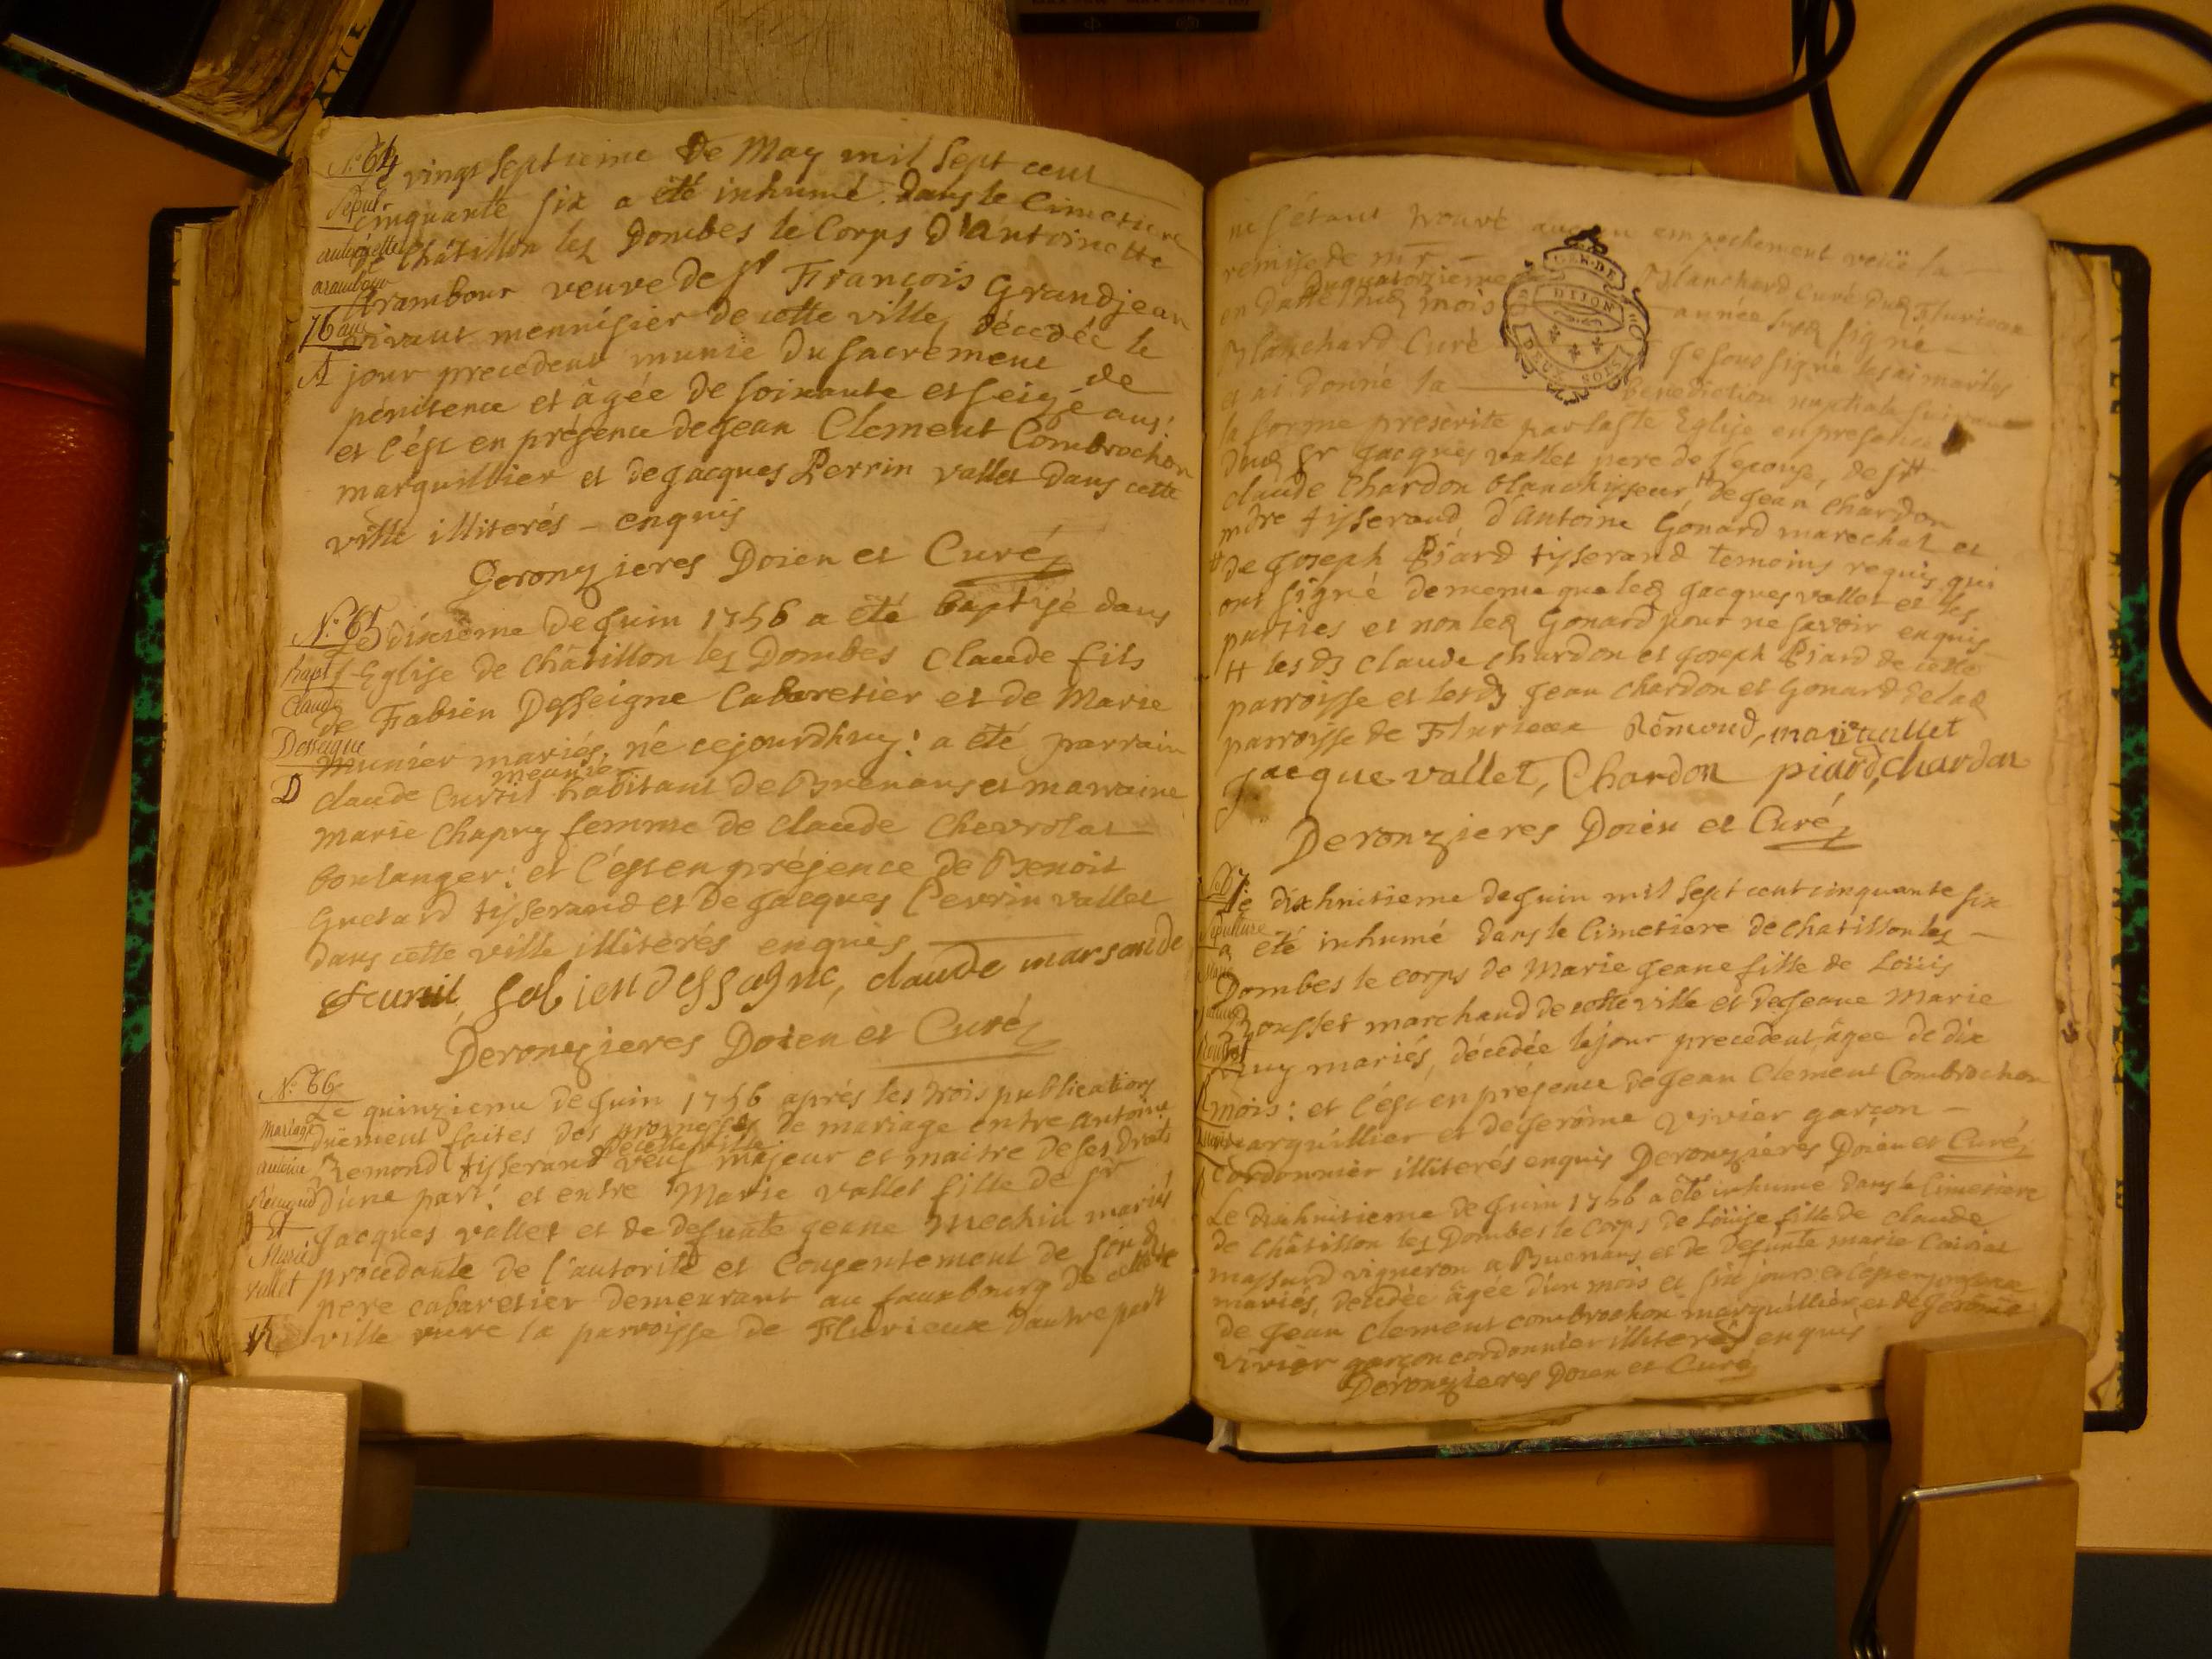 N.° 64
Sepul.
antoinette
arambour
76 ans
A
Le vingt Septieme De May mil Sept cent
cinquante six a été inhumé dans le Cimetiere
de Châtillon les Dombes le Corps D'Antoinette
Arambour veuve de Sr François Grandjean
vivant mennisier de cette ville, décédée le
jour precedent munie du sacrement de
pénitence et âgée de soixante et seize ans:
et c'est en présence de Jean Clement Combrochon
marguillier et de Jacques Perrin vallet dans cette
ville illiterés enquis
Deronzieres Doien et Curé
N.° 65
bapt.
Claude
Desseigne
D
Le dixième de Juin 1756 a été baptisé dans
l'Eglise de Châtillon les Dombes Claude fils
de Fabien Desseigne Cabaretier et de Marie
munier mariés, né cejourdhuy: a été parrain
meunier
claude Curtil habitant de Buenans et marraine
marie chapuy femme de claude Chevrolat
boulanger: et c'est en présence de Benoit
Guetard tisserand et de Jacques Perrin vallet
dans cette ville illiterés enquis
fabien dessagne, claude
Deronzieres Doien et Curé
N.° 66
Mariage
antoine
Rémond
et
Marie
vallet
Le quinzieme de Juin 1756 aprés les trois publications
düement faites des promesses de mariage entre Antoine
de cette ville
Remond tisserand veuf majeur et maitre de ses droits
d'une part: et entre Marie vallet fille de Sr
Jacques vallet et de defunte Jeane Mechin mariés
procedante de l'autorité et Consentement de son d
pere cabaretier demeurant au fauxbourg de cette
ville rure la parroisse de Flurieux d'autre part
ne s'étant trouvé aucun empechement veüe la
remise de mr Blanchard Curé dud Flurieux
du quatorzieme
en datte dud mois année susd signé
Blanchard Curé Je soussigné les ai mariés
et ai donné la bénédiction nuptiale suivant
la forme prescrite par la Ste Eglise en presence
dud Sr Jacques vallet pere de l'epouse, de Sr
claude Chardon blanchisseur, de Jean Chardon
mtre tisserand, d'Antoine Gonard marechal et
de Joseph Piard tisserand temoins requis qui
ont signé de meme que led Jacques vallet et les
parties et non led Gonard pour ne savoir enquis
les ds Claude chardon et Joseph Piard de cette
parroisse et lesds Jean Chardon et Gonard de lad
parroisse de Flurieux Rémond, marie vallet
Jacque vallet, Chardon piard, chardon
Deronzieres Doien et Curé
Sepulture
Le dixhuitieme de Juin mil Sept cent cinquante six
a été inhumé dans le Cimetiere de chatillon les
Dombes le corps de Marie Jeane fille de Loüis
Rousset marchand de cette ville et de Jeane Marie
mariés, décédée le jour precedent, âgée de dix
mois: et c'est en présence de Jean Clement Combrochon
marguillier et de Jerôme Vivier garçon
Cordonnier illiterés enquis Deronzieres Doien et Curé
Le dixhuitieme de Juin 1756 a été inhumé dans le Cimetiere
de Châtillon les Dombes le corps de Loüise fille de claude
massard vigneron a Buenans et de defunte marie
mariés, décédée âgée d'un mois et six jours: et c'est en présence
de Jean Clement combrochon marguillier, et de Jerôme
vivier garçon cordonnier illiterés enquis
Deronzieres Doien et Curé
GEN. DE
DIJON
DEUX SOLS